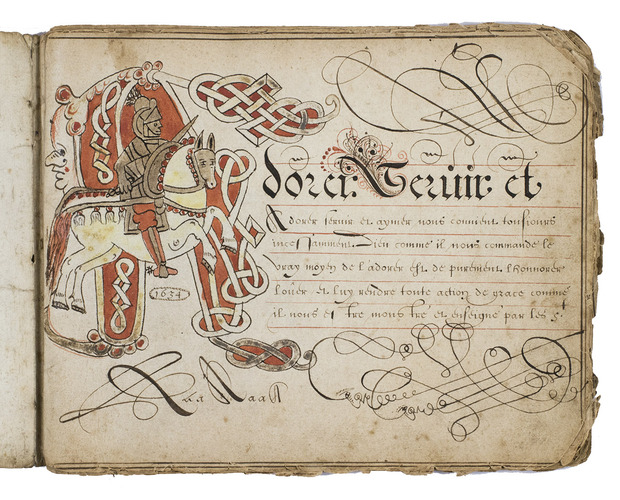 Adorer. Servir. et
Adorer servir et aymer nous convient tousiours
incessamment. Dieu comme il nous commande le
Vray moyen de ladorer est de purement lhonnorer
Loüer et luy rendre toute action de grace comme
il nous tre mons tre et enseigne par les S.
1634